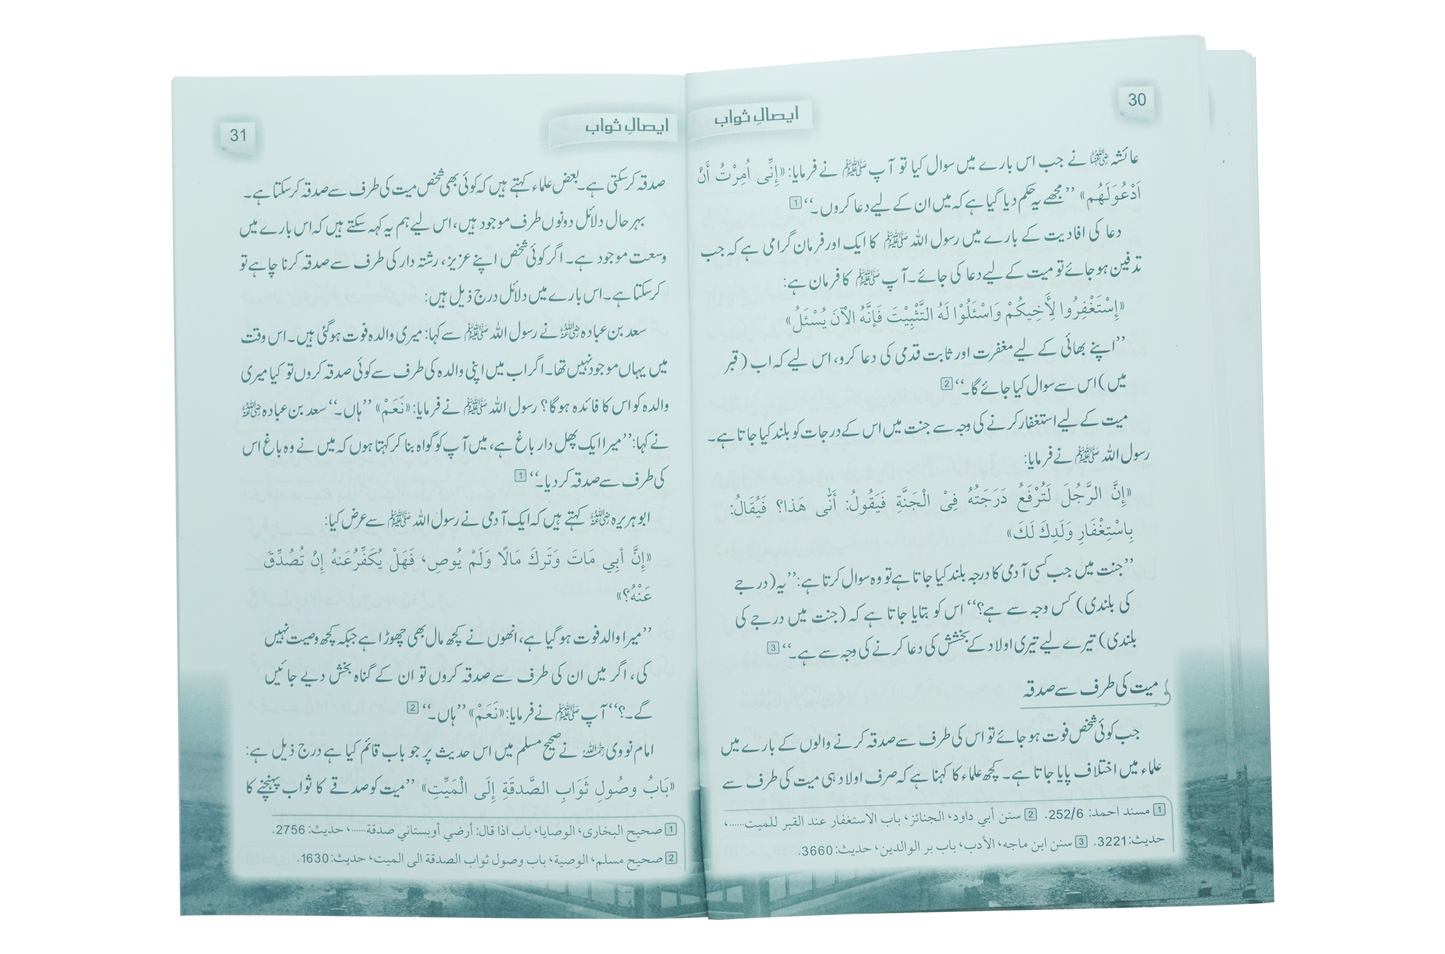 30
ایصالِ ثواب
عائشہ رضی اللہ عنہا نے جب اس بارے میں سوال کیا تو آپ ﷺ نے فرمایا: «إِنِّى اُمِرْتُ أَنْ
اَدْعُوَلَهُم» ’’مجھے یہ حکم دیا گیا ہے کہ میں ان کے لیے دعا کروں۔‘‘ 1
دعا کی افادیت کے بارے میں رسول اللہ ﷺ کا ایک اور فرمان گرامی ہے کہ جب
تدفین ہو جائے تو میت کے لیے دعا کی جائے۔ آپ ﷺ کا فرمان ہے:
«إِسْتَغْفِرُوا لِأَخِيكُمْ وَاسْئَلُوْا لَهُ التَّثْبِيْتَ فَإِنَّهُ الْآنَ يُسْئَلُ»
’’اپنے بھائی کے لیے مغفرت اور ثابت قدمی کی دعا کرو، اس لیے کہ اب (قبر
میں) اس سے سوال کیا جائے گا۔‘‘ 2
میت کے لیے استغفار کرنے کی وجہ سے جنت میں اس کے درجات کو بلند کیا جاتا ہے۔
رسول اللہ ﷺ نے فرمایا:
«إِنَّ الرَّجُلَ لَتُرْفَعُ دَرَجَتُهُ فِیْ الْجَنَّةِ فَيَقُولُ: أَنّٰى هَذا؟ فَيُقَالُ:
بِاسْتِغْفَارِ وَلَدِكَ لَكَ»
’’جنت میں جب کسی آدمی کا درجہ بلند کیا جاتا ہے تو وہ سوال کرتا ہے: ’’یہ (درجے
کی بلندی) کس وجہ سے ہے؟‘‘ اس کو بتایا جاتا ہے کہ (جنت میں درجے کی
بلندی) تیرے لیے تیری اولاد کے بخشش کی دعا کرنے کی وجہ سے ہے۔‘‘ 3
میت کی طرف سے صدقہ
جب کوئی شخص فوت ہو جائے تو اس کی طرف سے صدقہ کرنے والوں کے بارے میں
علماء میں اختلاف پایا جاتا ہے۔ کچھ علماء کا کہنا ہے کہ صرف اولاد ہی میت کی طرف سے
1 مسند احمد: 252/6. 2 سنن أبي داود، الجنائز، باب الاستغفار عند القبر للميت......،
حديث: 3221. 3 سنن ابن ماجه، الأدب، باب بر الوالدين، حديث: 3660.
ایصالِ ثواب
31
صدقہ کر سکتی ہے۔ بعض علماء کہتے ہیں کہ کوئی بھی شخص میت کی طرف سے صدقہ کر سکتا ہے۔
بہر حال دلائل دونوں طرف موجود ہیں، اس لیے ہم یہ کہہ سکتے ہیں کہ اس بارے میں
وسعت موجود ہے۔ اگر کوئی شخص اپنے عزیز، رشتہ دار کی طرف سے صدقہ کرنا چاہے تو
کر سکتا ہے۔ اس بارے میں دلائل درج ذیل ہیں:
سعد بن عبادہ رضی اللہ عنہ نے رسول اللہ ﷺ سے کہا: میری والدہ فوت ہو گئی ہیں۔ اس وقت
میں یہاں موجود نہیں تھا۔ اگر اب میں اپنی والدہ کی طرف سے کوئی صدقہ کروں تو کیا میری
والدہ کو اس کا فائدہ ہو گا؟ رسول اللہ ﷺ نے فرمایا: «نَعَمْ» ’’ہاں۔‘‘ سعد بن عبادہ رضی اللہ عنہ
نے کہا: ’’میرا ایک پھل دار باغ ہے، میں آپ کو گواہ بنا کر کہتا ہوں کہ میں نے وہ باغ اس
کی طرف سے صدقہ کر دیا۔‘‘ 1
ابو ہریرہ رضی اللہ عنہ کہتے ہیں کہ ایک آدمی نے رسول اللہ ﷺ سے عرض کیا:
«إِنَّ أَبِي مَاتَ وَتَرَكَ مَالًا وَلَمْ يُوصِ، فَهَلْ يُكَفِّرُ عَنْهُ إِنْ تُصُدِّقَ
عَنْهُ؟»
’’میرا والد فوت ہو گیا ہے، انھوں نے کچھ مال بھی چھوڑا ہے جبکہ کچھ وصیت نہیں
کی، اگر میں ان کی طرف سے صدقہ کروں تو ان کے گناہ بخش دیے جائیں
گے۔؟‘‘ آپ ﷺ نے فرمایا: «نَعَمْ» ’’ہاں۔‘‘ 2
امام نووی رحمہ اللہ نے صحیح مسلم میں اس حدیث پر جو باب قائم کیا ہے درج ذیل ہے:
«بَابُ وصُولِ ثَوَابِ الصَّدَقَةِ إِلَى الْمَيِّتِ» ’’میت کو صدقے کا ثواب پہنچنے کا
1 صحیح البخاری، الوصایا، باب اذا قال: أرضي أوبستاني صدقة......، حدیث: 2756.
2 صحیح مسلم، الوصية، باب وصول ثواب الصدقة الی الميت، حدیث: 1630.